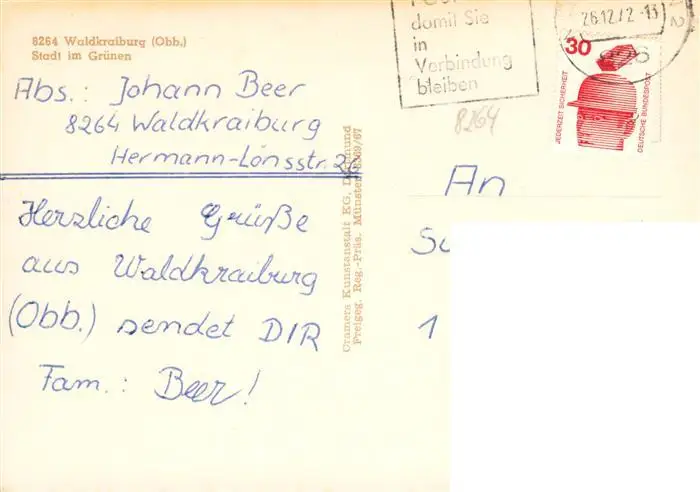 8264 Waldkraiburg (Obb.)
Stadt im Grünen
Abs.: Johann Beer
8264 Waldkraiburg
Hermann-Lönsstr.
Herzliche Grüße
aus Waldkraiburg
(Obb.) sendet DIR
Fam.: Beer!
Cramers Kunstanstalt KG, Dortmund
Freigeg. Reg.-Präs. Münster
damit Sie
in
Verbindung
bleiben
8264
26.12.72-13
30
JEDERZEIT SICHERHEIT
DEUTSCHE BUNDESPOST
An
1